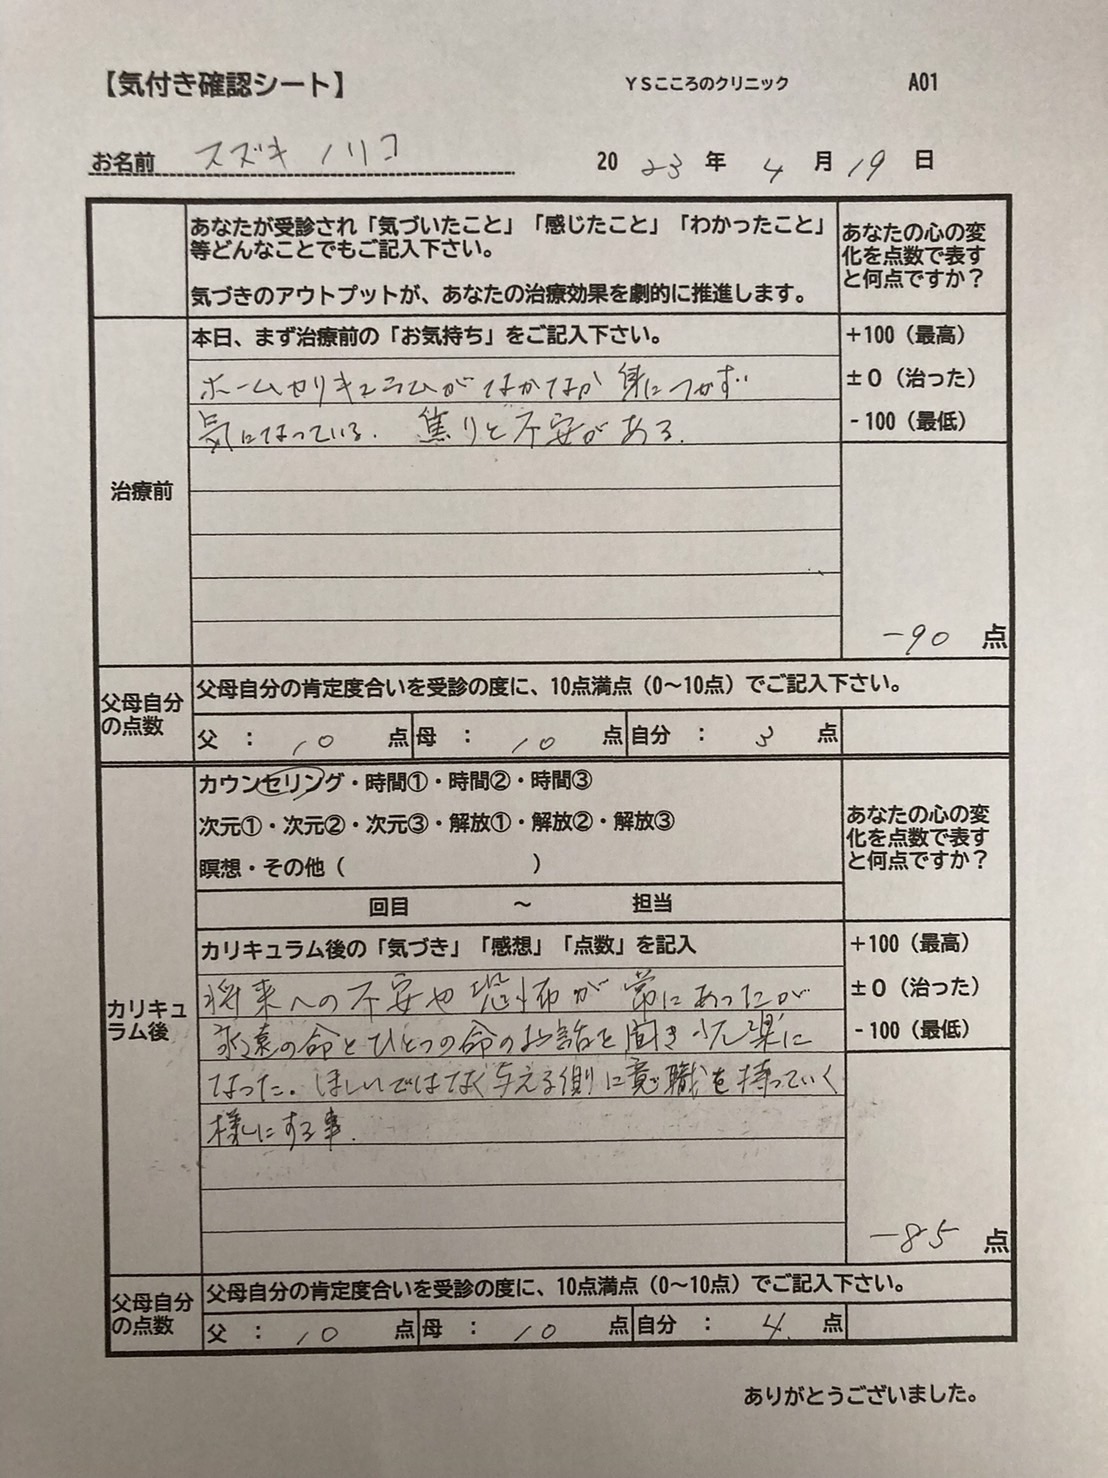 【気付き確認シート】 YSこころのクリニック A01
お名前 スズキ ノリコ 2023年4月19日
あなたが受診され「気づいたこと」「感じたこと」「わかったこと」
等どんなことでもご記入下さい。
気づきのアウトプットが、あなたの治療効果を劇的に推進します。
あなたの心の変
化を点数で表す
と何点ですか？
治療前
本日、まず治療前の「お気持ち」をご記入下さい。
ホームカリキュラムがなかなか身につかず
気になっている。焦りと不安がある。
+100（最高）
±0（治った）
-100（最低）
-90 点
父母自分
の点数
父母自分の肯定度合いを受診の度に、10点満点（0～10点）でご記入下さい。
父 ： 10 点 母 ： 10 点 自分 ： 3 点
カリキュ
ラム後
カウンセリング・時間①・時間②・時間③
次元①・次元②・次元③・解放①・解放②・解放③
瞑想・その他（ ）
回目 ～ 担当
あなたの心の変
化を点数で表す
と何点ですか？
カリキュラム後の「気づき」「感想」「点数」を記入
将来への不安や恐怖が常にあったが
永遠の命とひとつの命のお話を聞き少し楽に
なった。ほしいではなく与える側に意識を持っていく
様にする事。
+100（最高）
±0（治った）
-100（最低）
-85 点
父母自分
の点数
父母自分の肯定度合いを受診の度に、10点満点（0～10点）でご記入下さい。
父 ： 10 点 母 ： 10 点 自分 ： 4. 点
ありがとうございました。